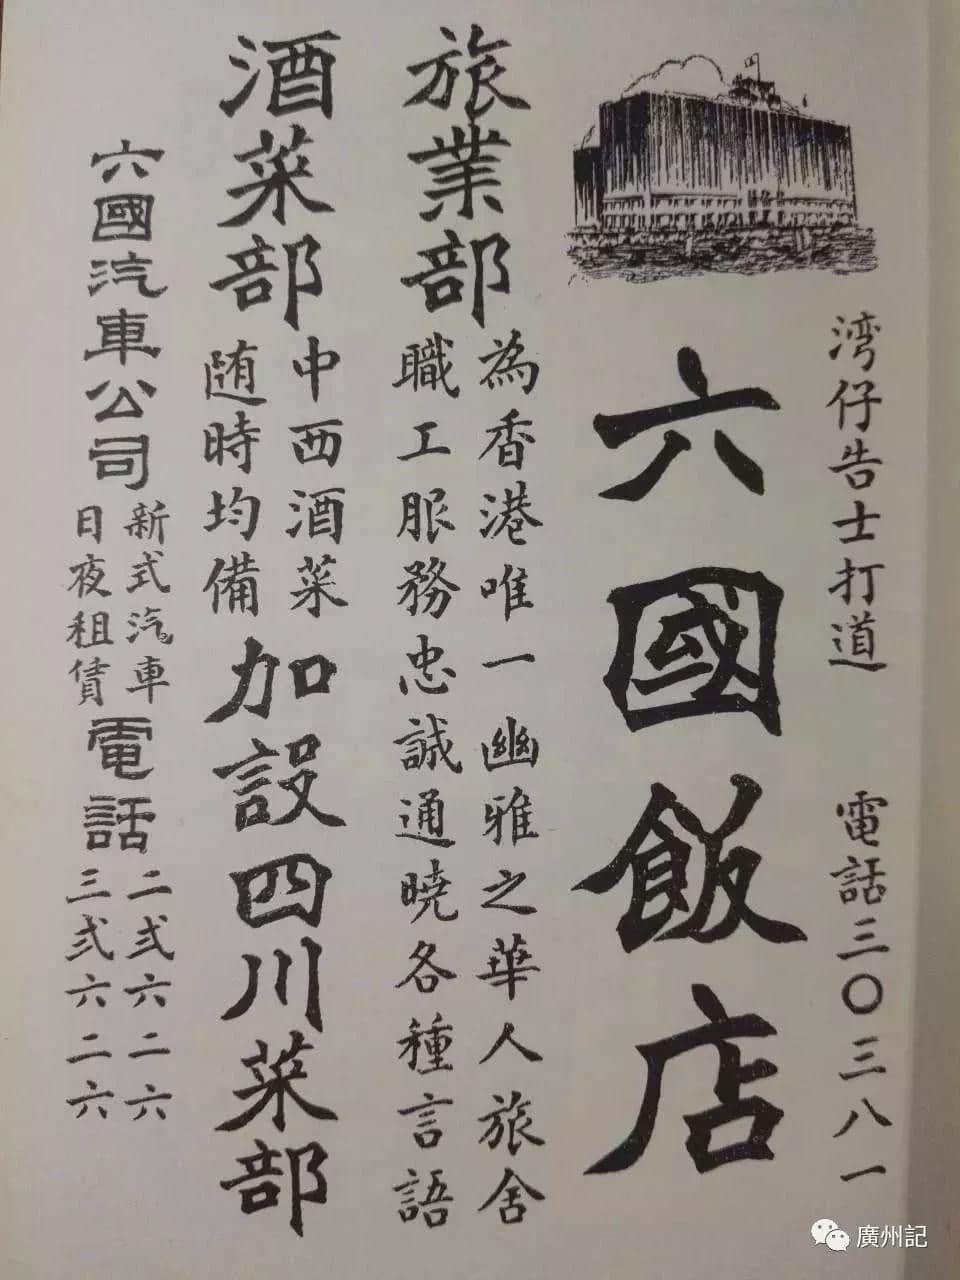 湾仔告士打道 電話三〇三八一
六國飯店
旅業部
為香港唯一幽雅之華人旅舍
職工服務忠誠通曉各種言語
酒菜部
中西酒菜
随時均備
加設四川菜部
六國汽車公司
新式汽車
日夜租賃
電話
二弍六二六
三弍六二六
廣州記